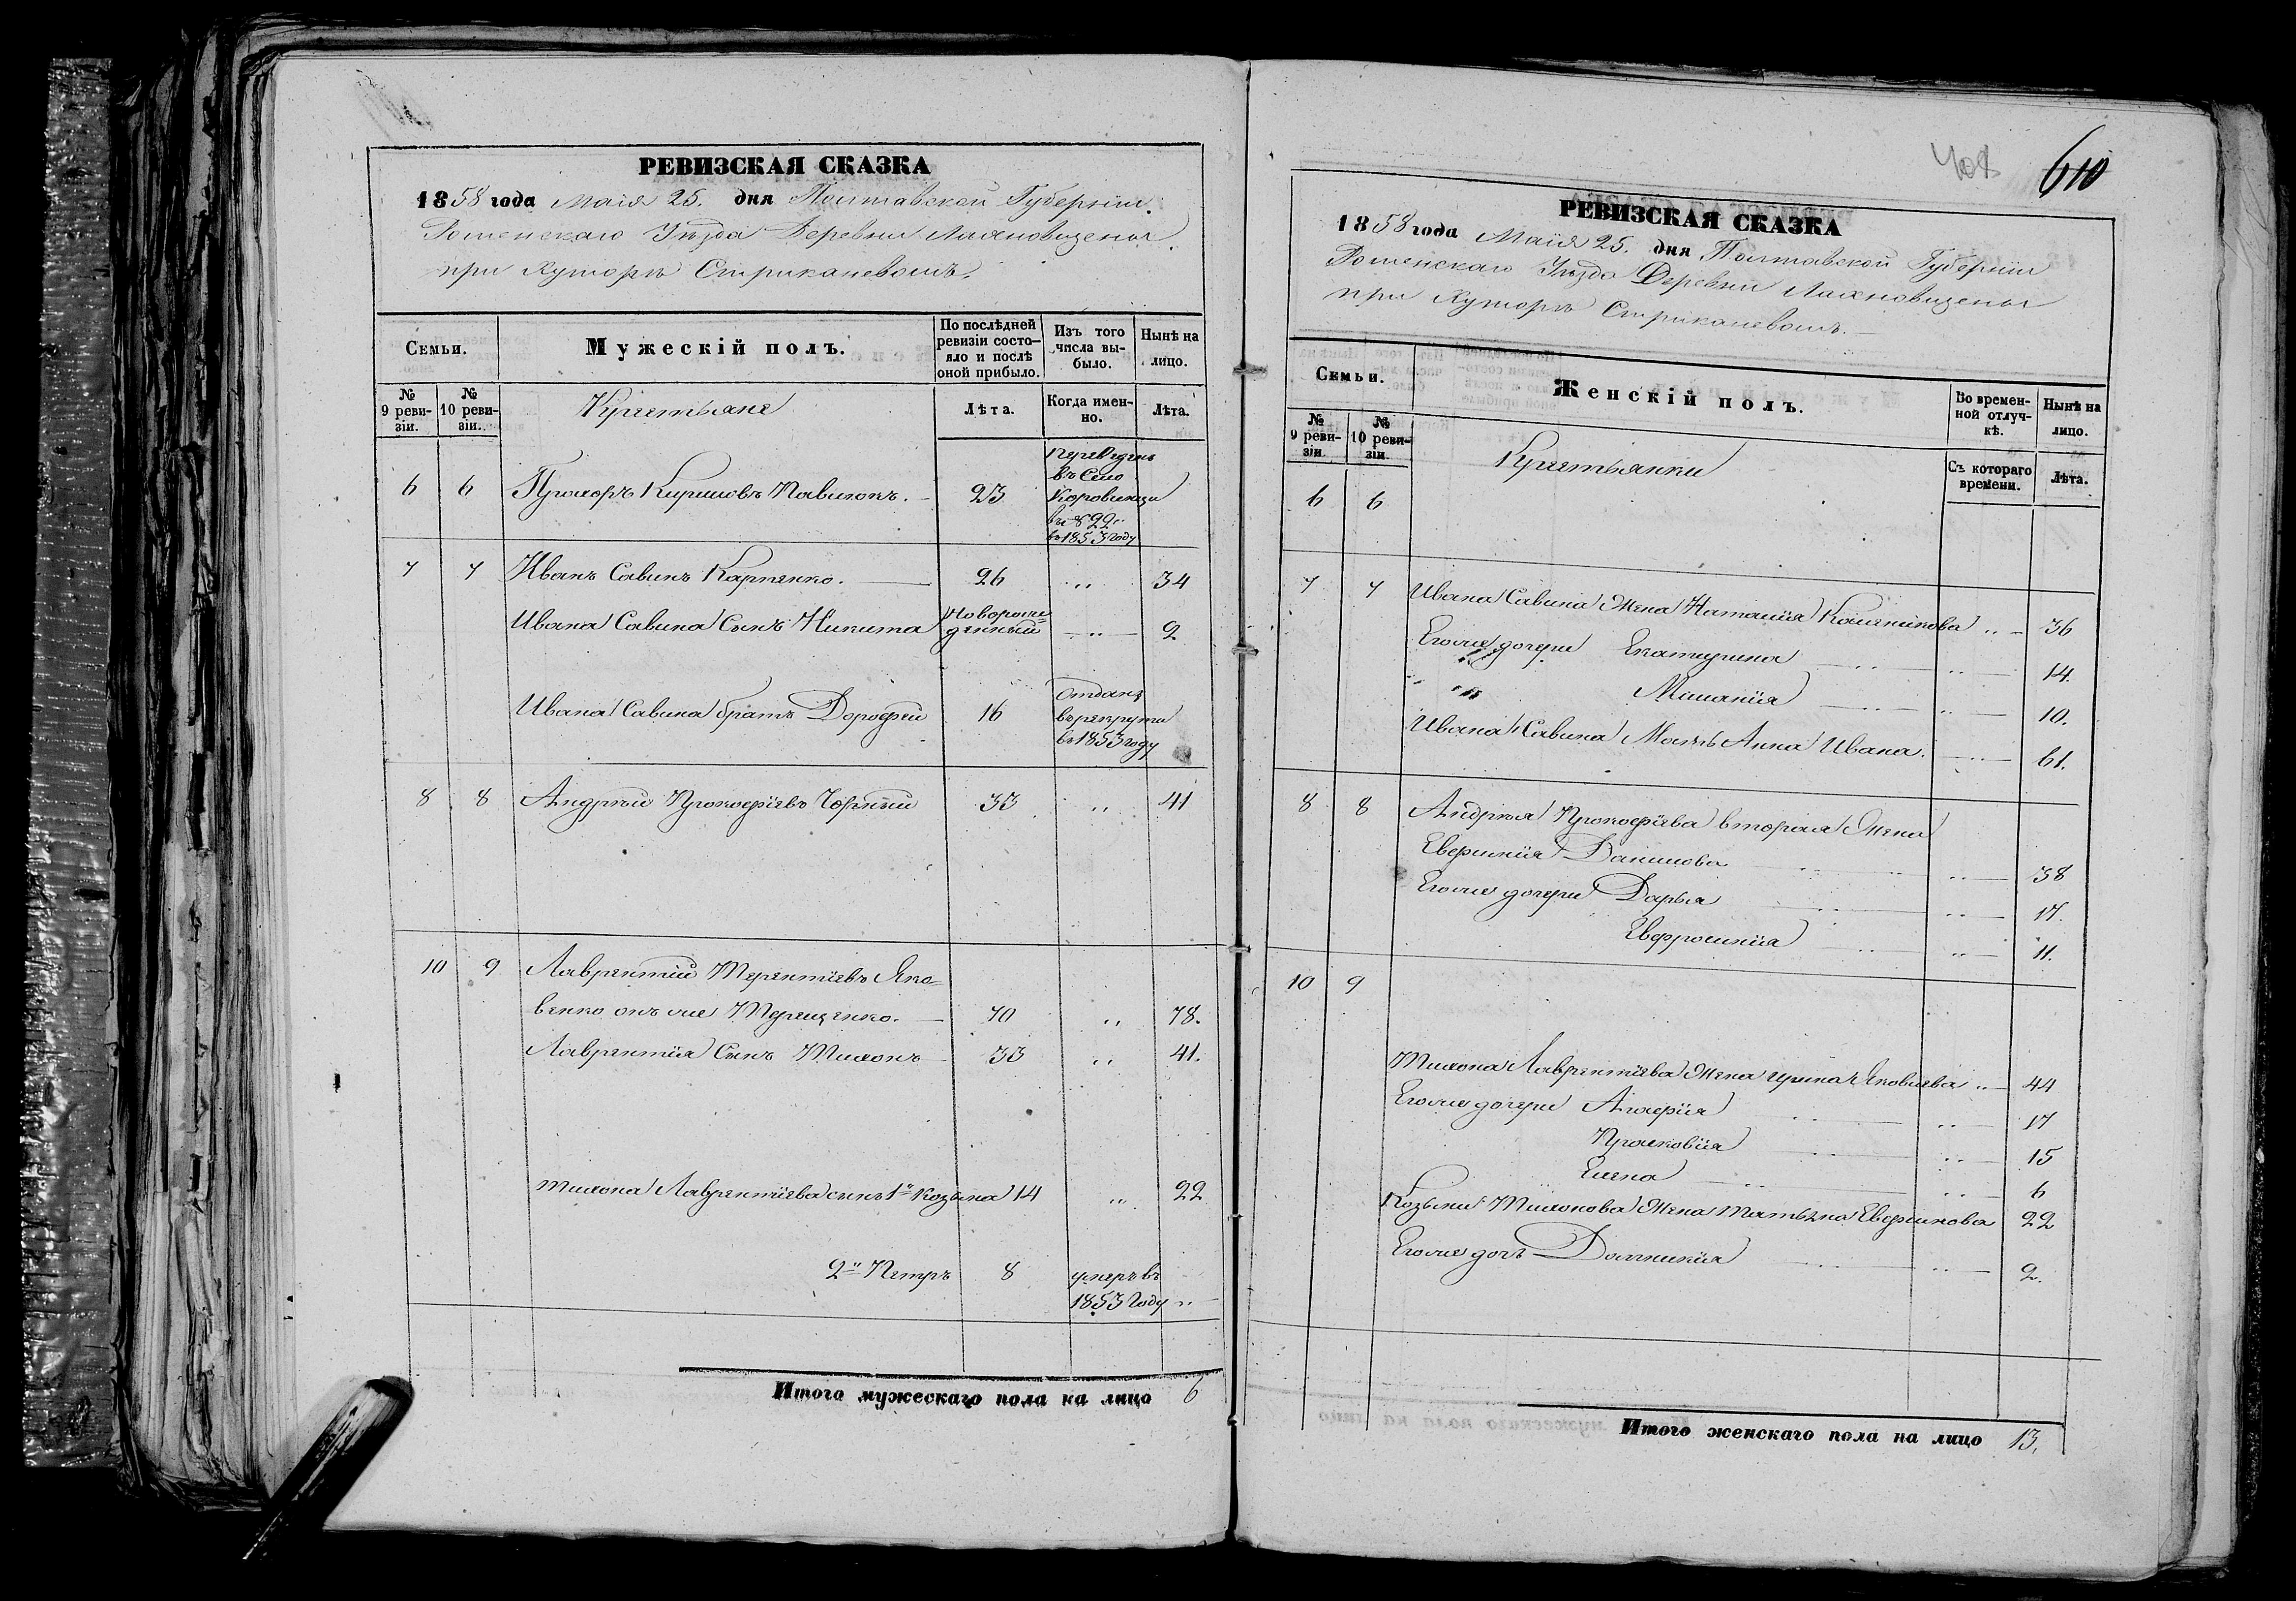 РЕВИЗСКАЯ СКАЗКА
1858 года Маія 25. дня Полтавской Губерніи.
Роменскаго Уѣзда Деревни
при Хуторѣ
Семьи.
Мужескій полъ.
По послѣдней ревизіи состо-яло и послѣ оной прибыло.
Изъ того числа вы-было.
Нынѣ на лицо.
№ 9 реви-зіи.
№ 10 реви-зіи.
Крестьяне
Лѣта.
Когда имен-но.
Лѣта.
6 6 Прохоръ Кириловъ 23 переведенъ
въ Село
въ 1853 году
7 7 Иванъ Савинъ Карпенко. 26 „ 34
Ивана Савина Сынъ Никита новорож=
денный „ 2
Ивана Савина братъ Дорофей 16 отданъ
въ рекруты
въ 1853 году
8 8 Андрей Прокофіевъ Чорный 33 „ 41
10 9 Лаврентій Терентіевъ Яко=
венко онъ же Терещенко. 70 „ 78.
Лаврентія Сынъ Тихонъ 33 „ 41.
Тихона Лаврентіева сынъ 1й Козьма 14 „ 22
2й Петръ 8 умеръ въ
1853 году „
Итого мужескаго пола на лицо 6
408 610
РЕВИЗСКАЯ СКАЗКА
1858 года Маія 25. дня Полтавской Губерніи
Роменскаго Уѣзда Деревни
при Хуторѣ
Семьи.
Женскій полъ.
Во времен-ной отлуч-кѣ.
Нынѣ на лицо.
№ 9 реви-зіи.
№ 10 реви-зіи.
Крестьянки
Съ котораго времени.
Лѣта.
6 6
7 7 Ивана Савина Жена Наталія „ 36
Его же дочери Екатерина „ 14.
„ „ Меланія „ 10.
Ивана Савина Мать Анна Ивана. „ 61.
8 8 Андрея Прокофіева вторая Жена
Евфимія Данилова „ 38
Его же дочери Дарья „ 17.
Евфросинія „ 11.
10 9
Тихона Лаврентіева Жена Ирина Яковлева „ 44
Его же дочери Агафія „ 17
Прасковія „ 15
Елена „ 6
Козьмы Тихонова Жена Татьяна Евфимова 22
Его же дочь Домникія „ 2.
Итого женскаго пола на лицо 13.